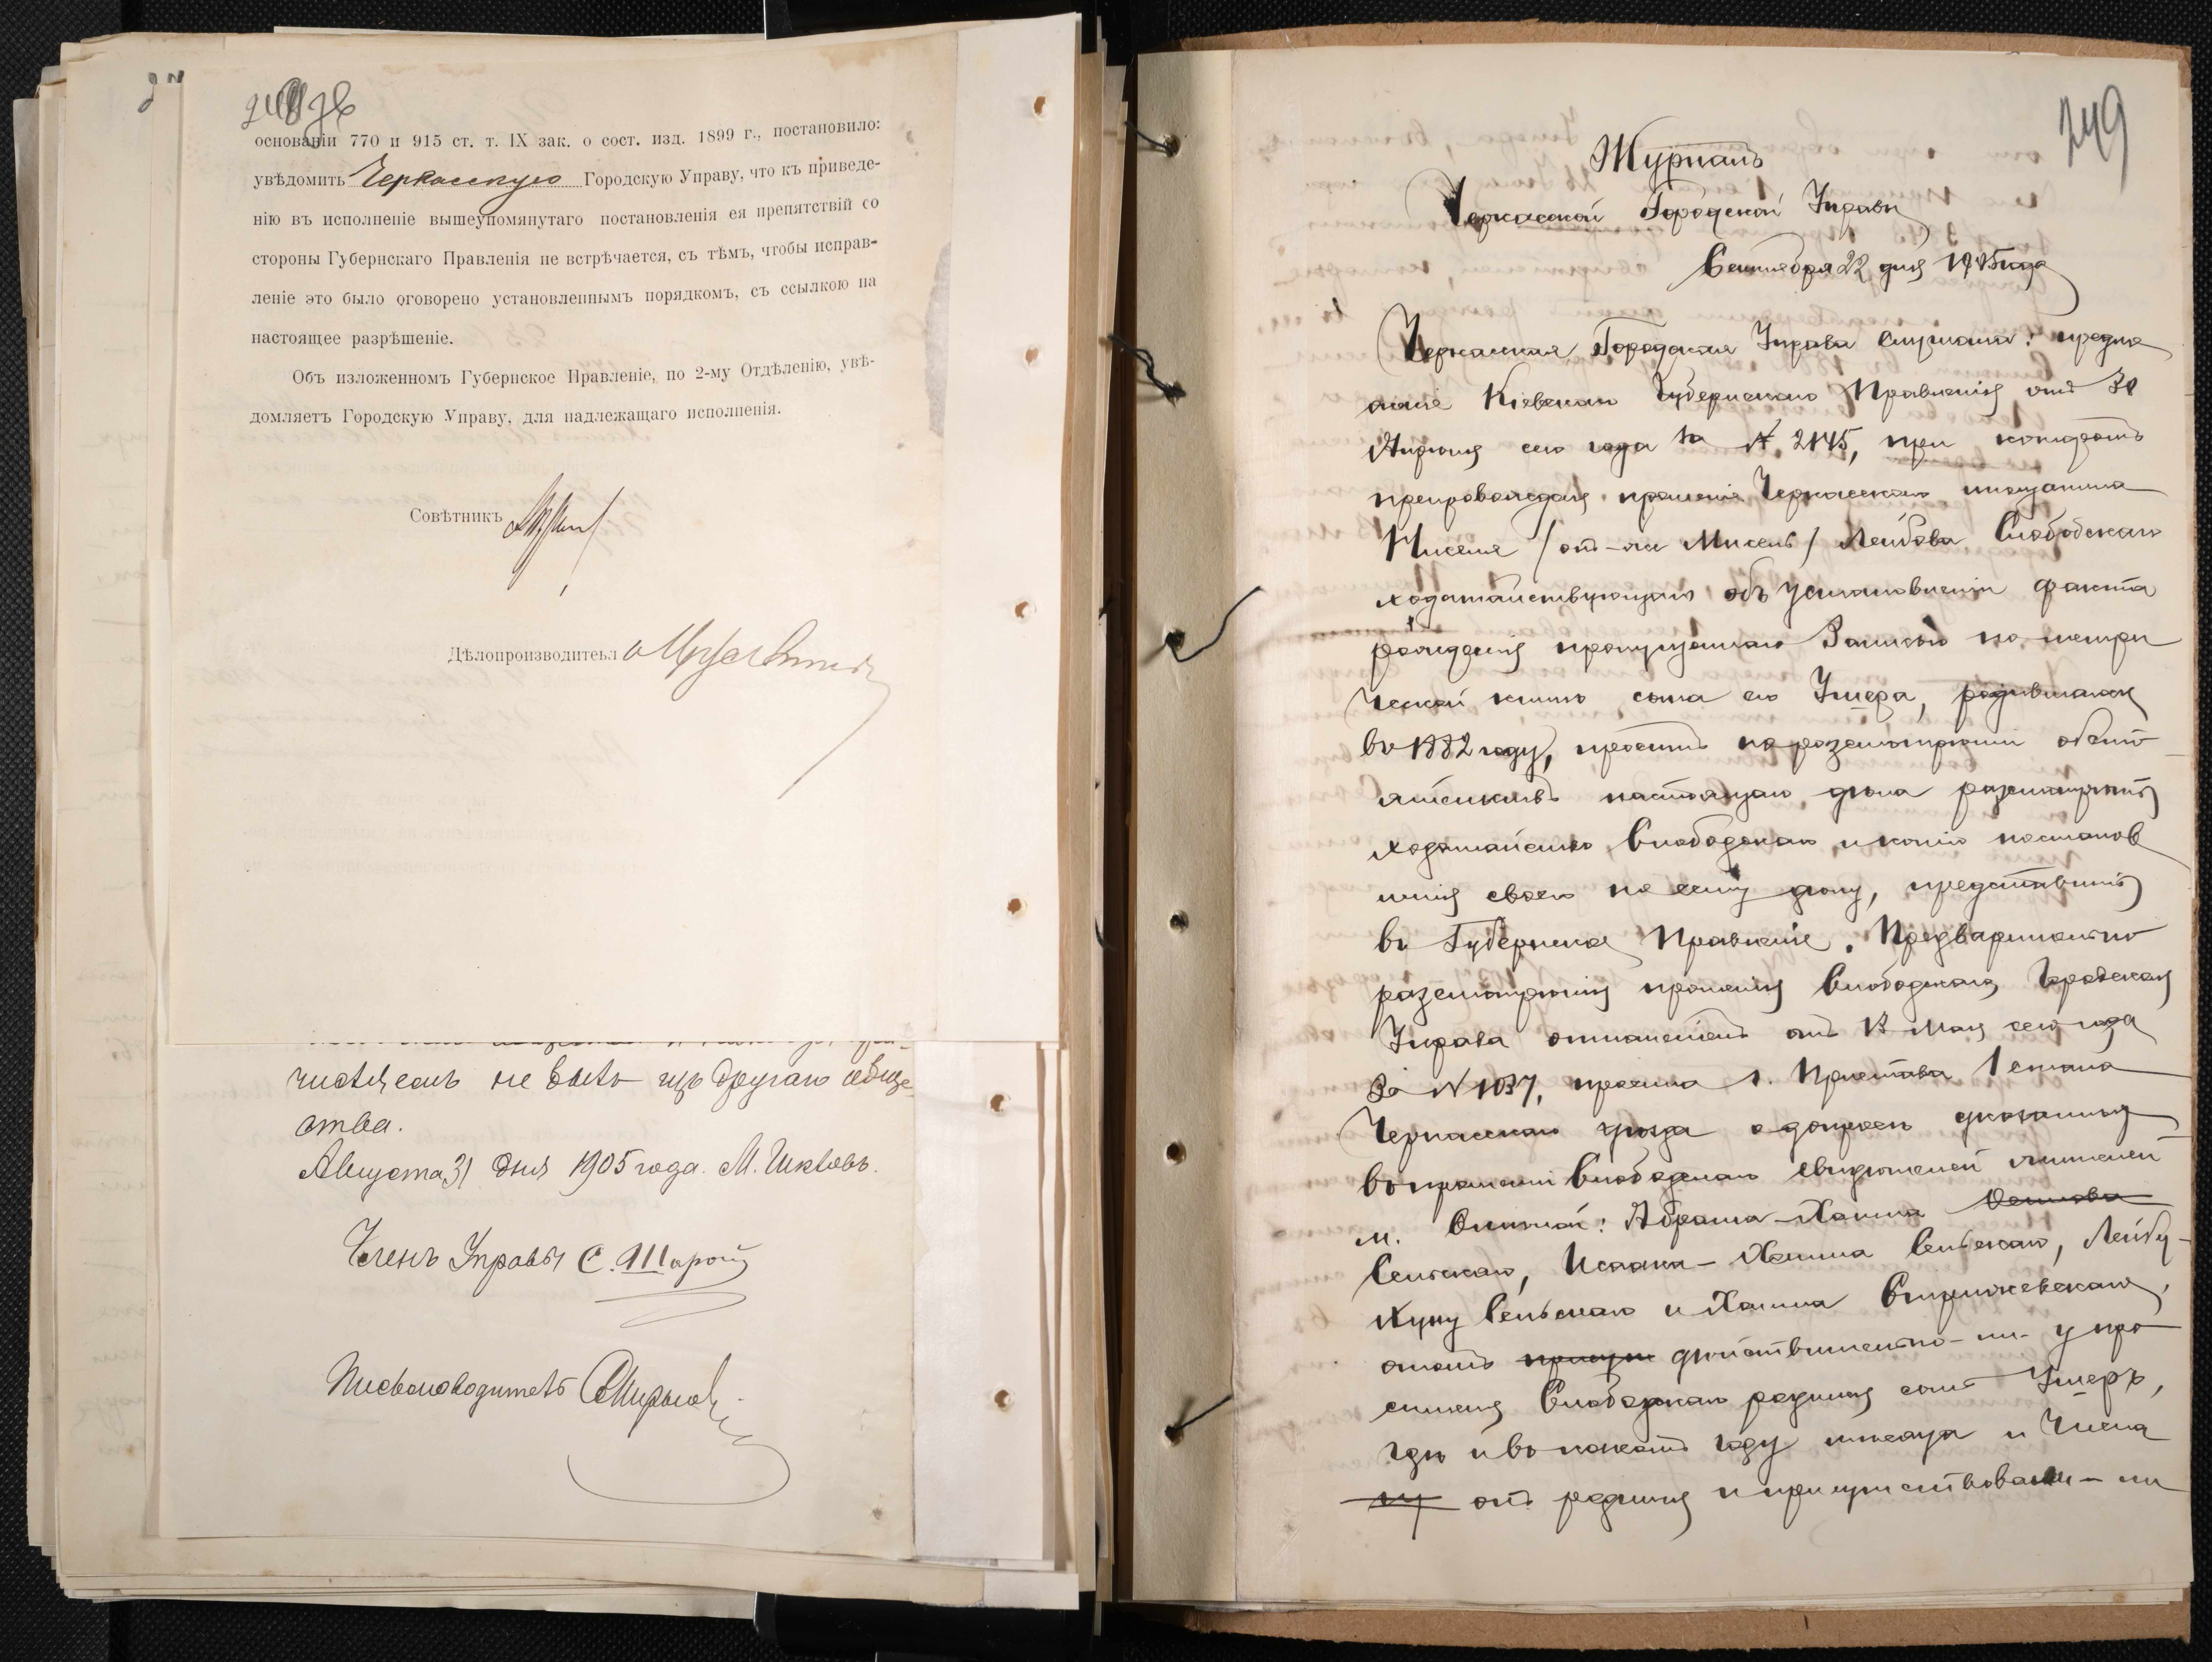 основаніи 770 и 915 ст. т. IX зак. о сост. изд. 1899 г., постановило:
увѣдомить Черкасскую Городскую Управу, что къ приведе-
нію въ исполненіе вышеупомянутаго постановленія ея препятствій со
стороны Губернскаго Правленія не встрѣчается, съ тѣмъ, чтобы исправ-
леніе это было оговорено установленнымъ порядкомъ, съ ссылкою на
настоящее разрѣшеніе.
Объ изложенномъ Губернское Правленіе, по 2-му Отдѣленію, увѣ-
домляетъ Городскую Управу, для надлежащаго исполненія.
Совѣтникъ
Дѣлопроизводитель
числѣ есль не быль изъ другаго обще-
ства.
Августа 31 дня 1905 года. М. Шкловъ.
Членъ Управы С. Шарой
Письмоводитель
249
Журналъ
Черкасской Городской Управы
Сентября 22 дня 1905 года
Черкасская Городская Управа слушала: предло
женіе Кіевскаго Губернскаго Правленія отъ 30
Апрѣля сего года за № 2145, при которомъ
препровождая прошеніе Черкасскаго мѣщанина
Ниселя / онъ-же Мисель / Лейбова Слободскаго
ходатайствующаго объ установленіи факта
рожденія пропущеннаго записью по метри
ческой книгѣ сына его Умера, родившагося
въ 1882 году, проситъ по разсмотрѣніи обсто
ятельствъ настоящаго дѣла разсмотрѣть
ходатайство Слободскаго и копію постанов
ленія своего по сему дѣлу, представить
въ Губернское Правленіе. Предварительно
разсмотрѣнія прошенія Слободскаго, Городская
Управа отношеніемъ отъ 13 Мая сего года
За № 1037, просила г. Пристава 1 стана
Черкасскаго уѣзда о допросѣ указанныхъ
въ прошеніи Слободскаго свидѣтелей жителей
м. Смѣлой: Абрама-Хаима
Сельскаго, Исаака-Хаима Сельскаго, Лейбу-
Куну Сельскаго и Хаима
о томъ дѣйствительно-ли у про
сителя Слободскаго родился сынъ Умеръ,
гдѣ и въ какомъ году мѣсяца и числа
онъ родился и присутствовали-ли